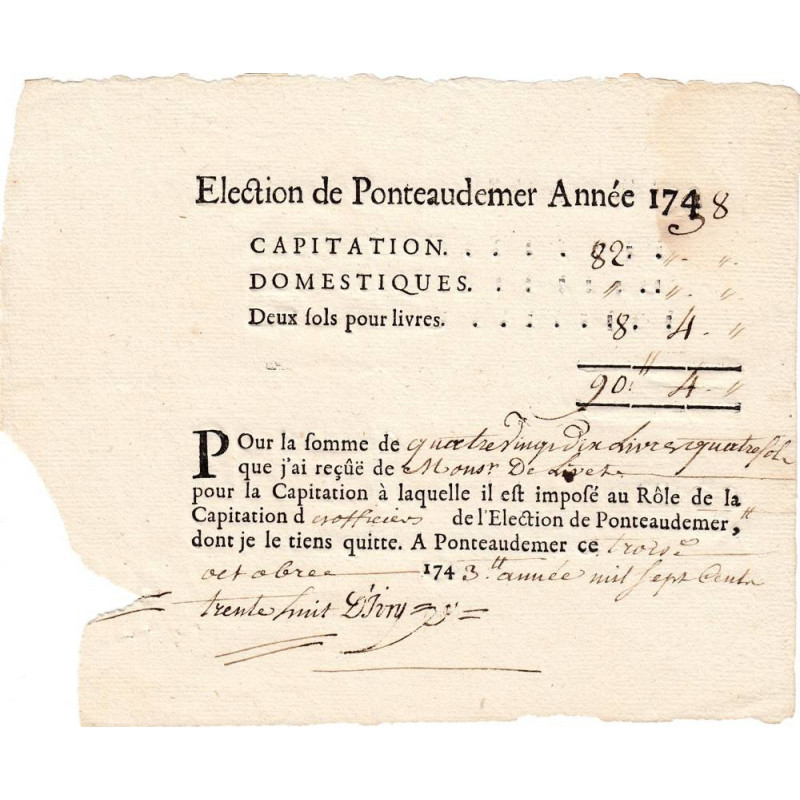 Election de Ponteaudemer Année 1738
CAPITATION. . . . . 82 " "
DOMESTIQUES. . . . . " " "
Deux ſols pour livres. . . . . 8. 4 "
90 " 4 "
POur la ſomme de quatre vingt dix Livres quatre ſols
que j'ai reçûë de Monsr De Livet
pour la Capitation à laquelle il est impoſé au Rôle de la
Capitation d es officiers de l'Election de Ponteaudemer,
dont je le tiens quitte. A Ponteaudemer ce trois e
octobre 1743 année mil Sept Cents
trente huit